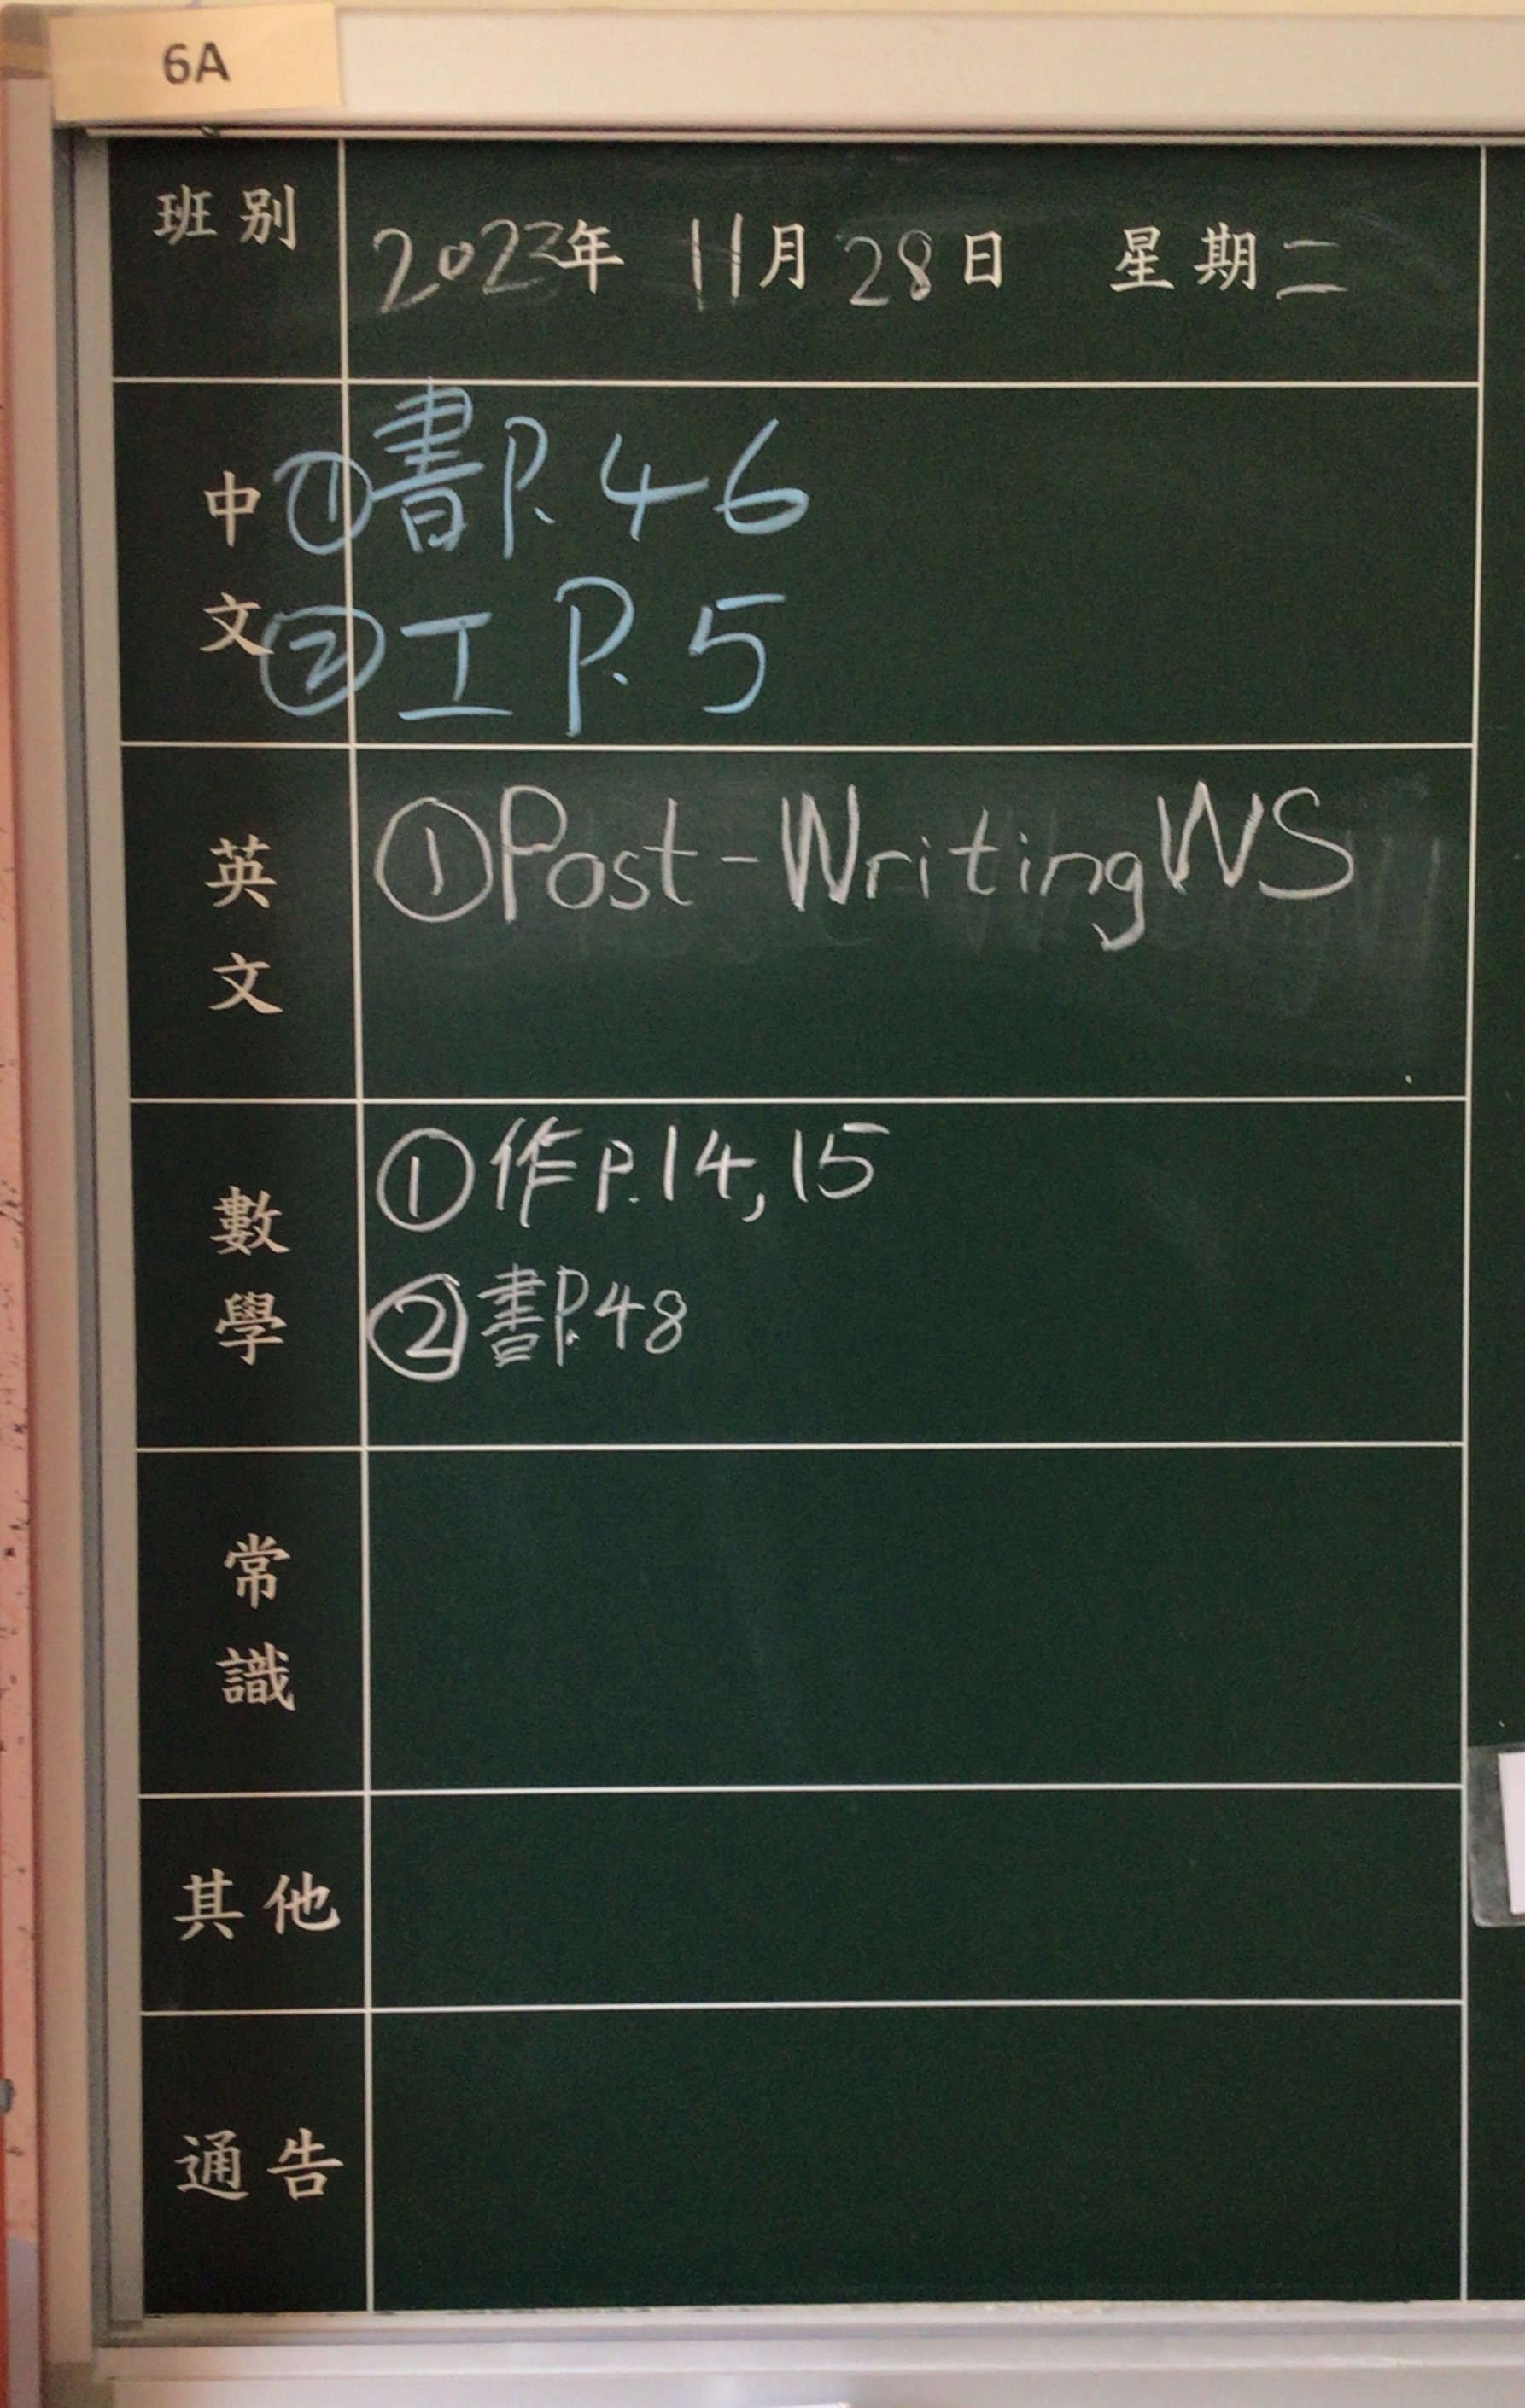 6A
班別 2023年 11月28日 星期二
中文 ①書P.46
②工 P.5
英文 ①Post-Writing WS
數學 ①作P.14,15
②書P.48
常識
其他
通告